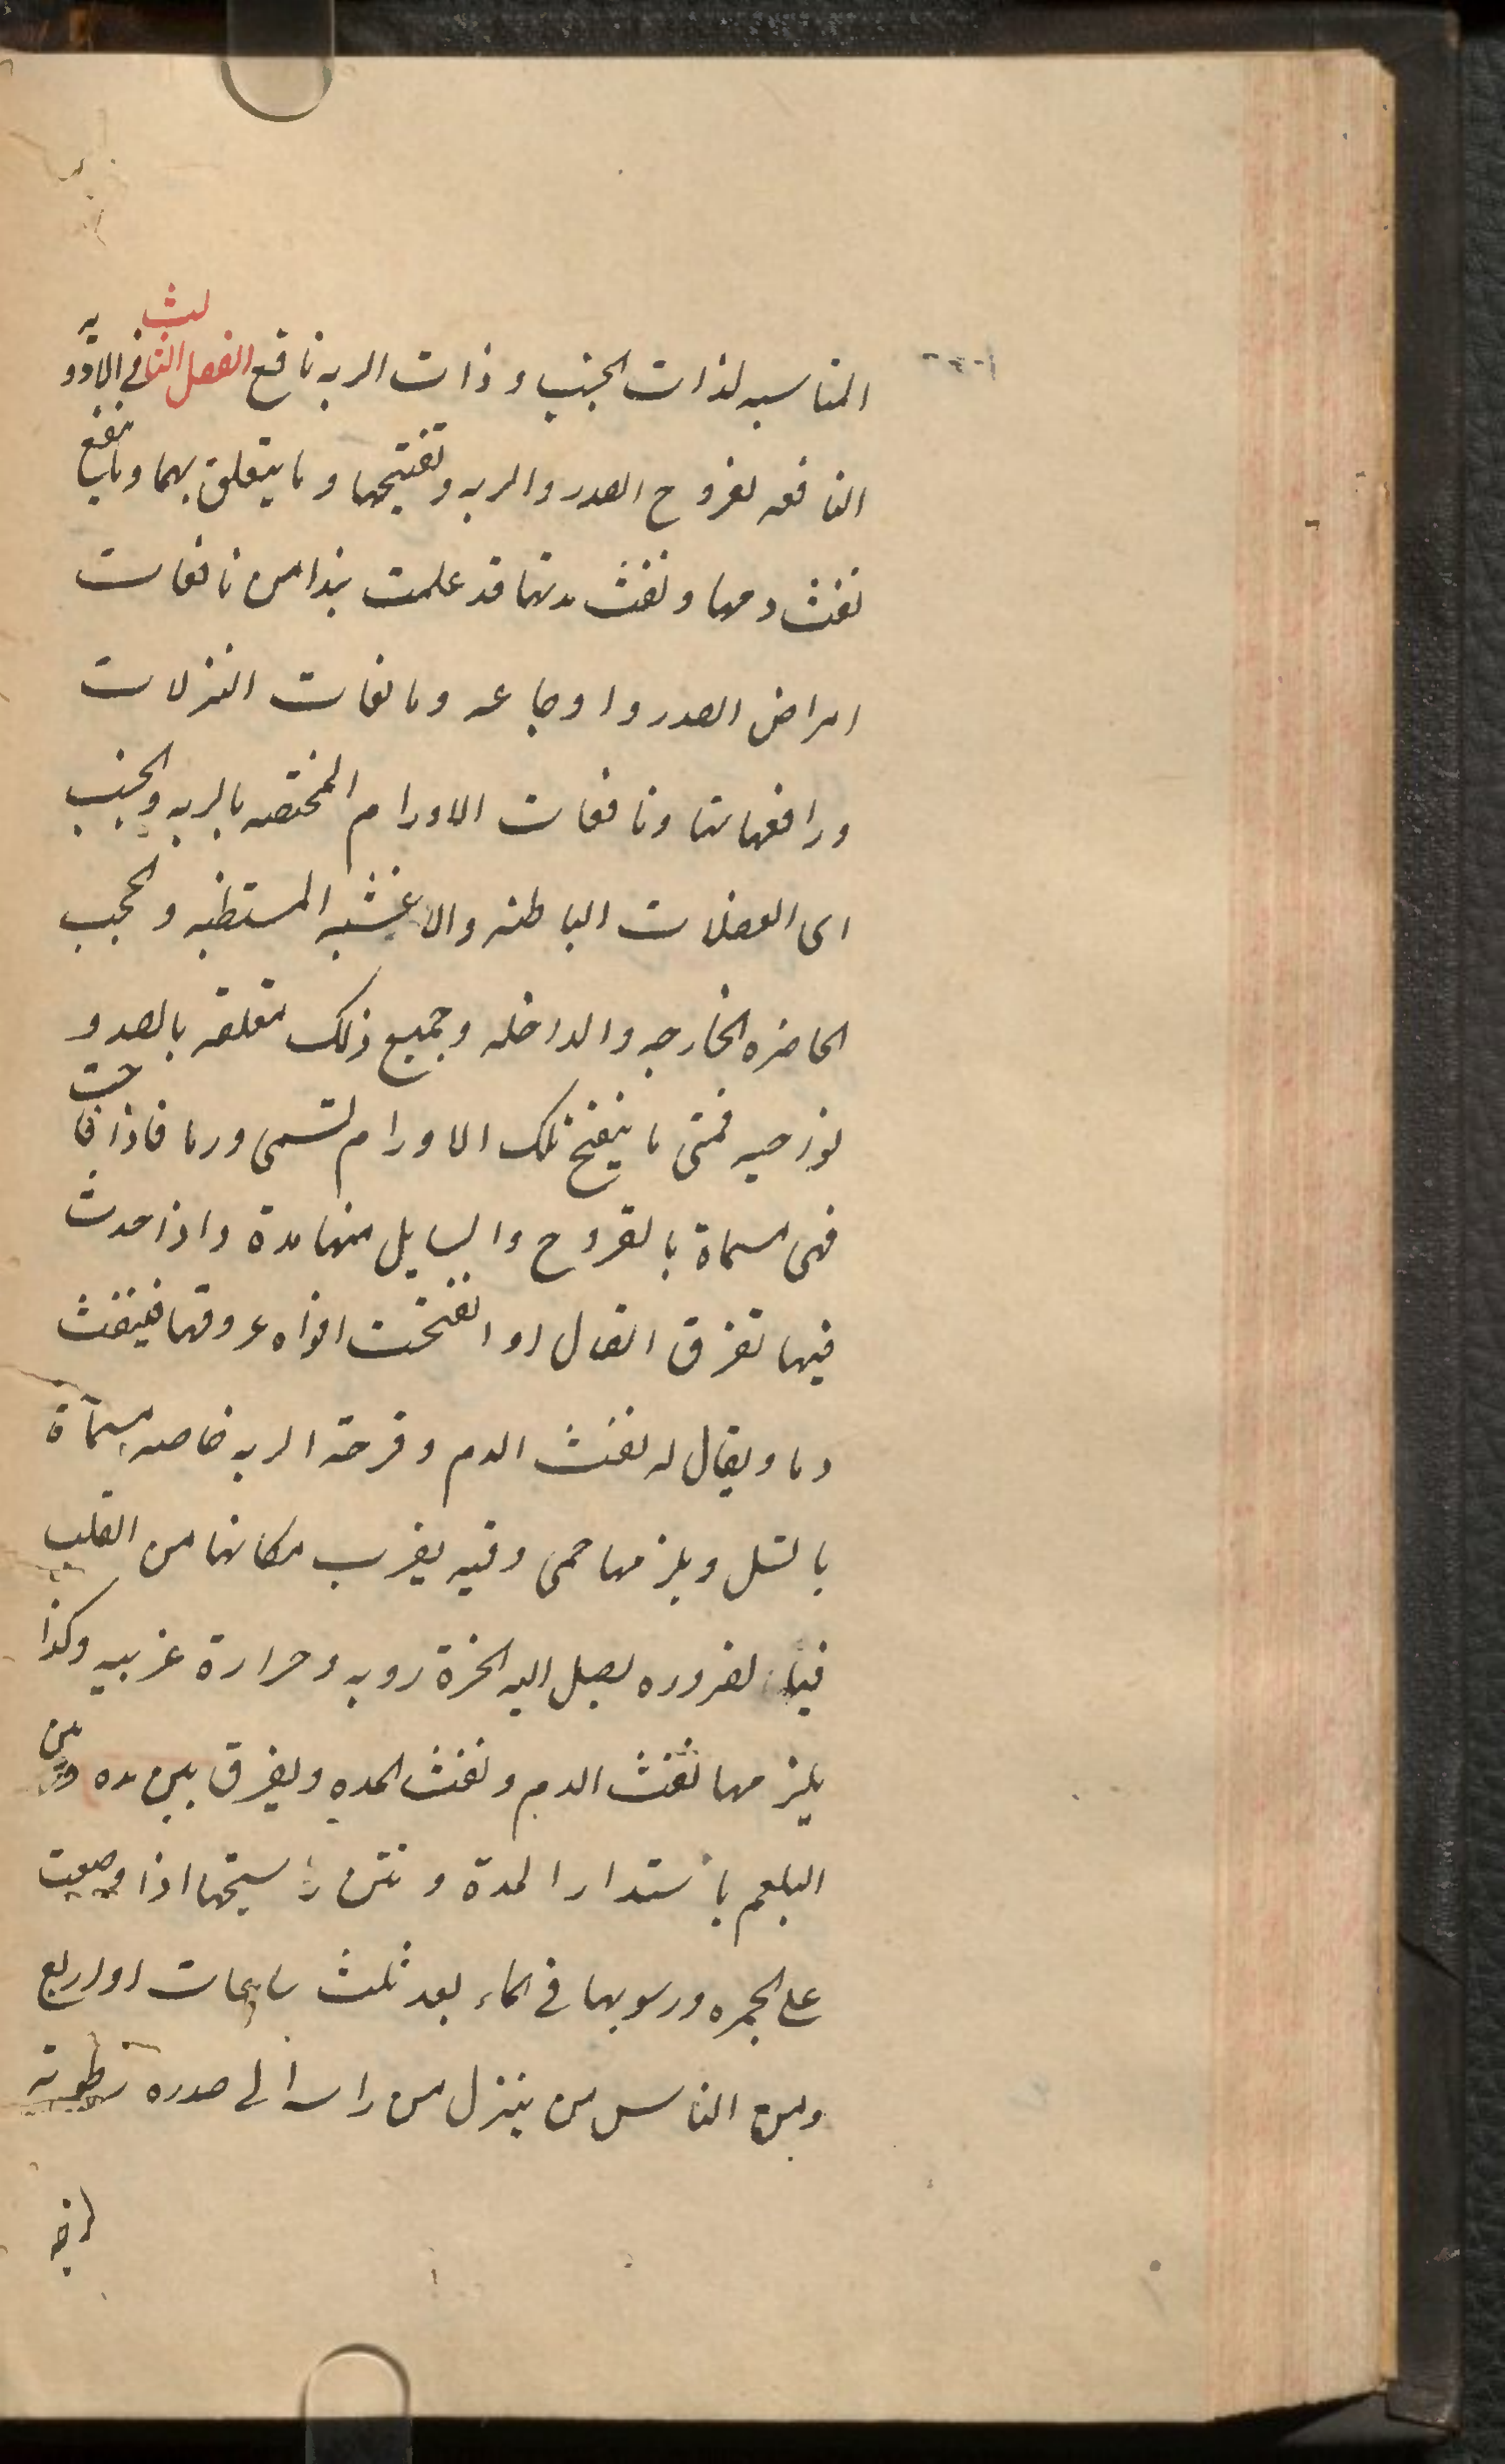 المناسبه لذات الجنب و ذات الريه نافع الفصل الثالث فى الادويه
النافعه لقروح الصدر والريه وتفتيحها وما يتعلق بهما وما ينفع
نفث دمها ونفث مدتها قد علمت هذا من نافعات
امراض الصدر و اوجاعه ومانعات النزلات
ورافعاتها ونافعات الاورام المختصه بالريه والجنب
اى العضلات الباطنه والاغشيه المستبطنه والحجب
الحاضره الخارجه والداخله وجميع ذلك متعلقه بالصدر و
نواحيه فمتى ما ينفتح تلك الاورام لتسمى ورما فاذا قاحت
فهى مسماة بالقروح والسايل منها مدة واذا حدث
فيها تفرق اتصال او انفتحت افواه عروقها فينفث
دما ويقال له نفث الدم وقرحة الريه خاصه مسماة
بالسل ويلزمها حمى دقيه يقرب مكانها من القلب
فبالضروره يصل اليه ابخرة رديه وحرارة غريبيه وكذا
يلزمها نفث الدم ونفث المده ويفرق بين مده وبين
البلغم باستدار المدة ونتن رايحتها اذا وضعت
على الجمره ورسوبها فى الماء بعد ثلث ساعات او اربع
ومن الناس من ينزل من راسه الى صدره رطوبة